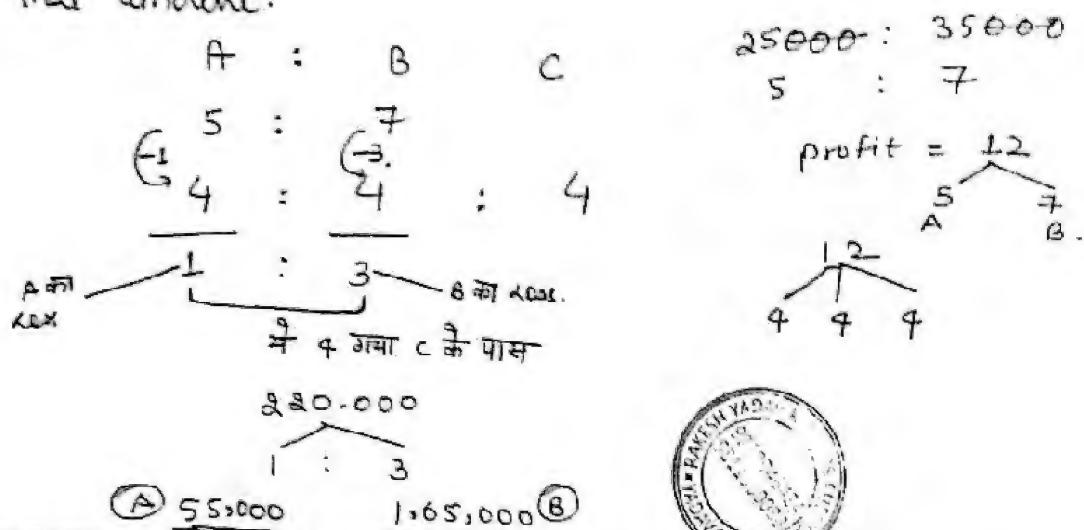 amount.
A : B C
5 : 7
-1 -3.
4 : 4 : 4
1 : 3
A का B का Loss.
ये 4 गया C के पास
220.000
1 : 3
A 55,000 1,65,000 B
25000 : 35000
5 : 7
profit = 12
5 7
A B.
12
4 4 4
RAKESH YADAV